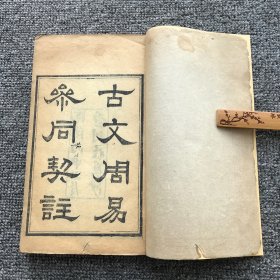 古文周易
參同契註